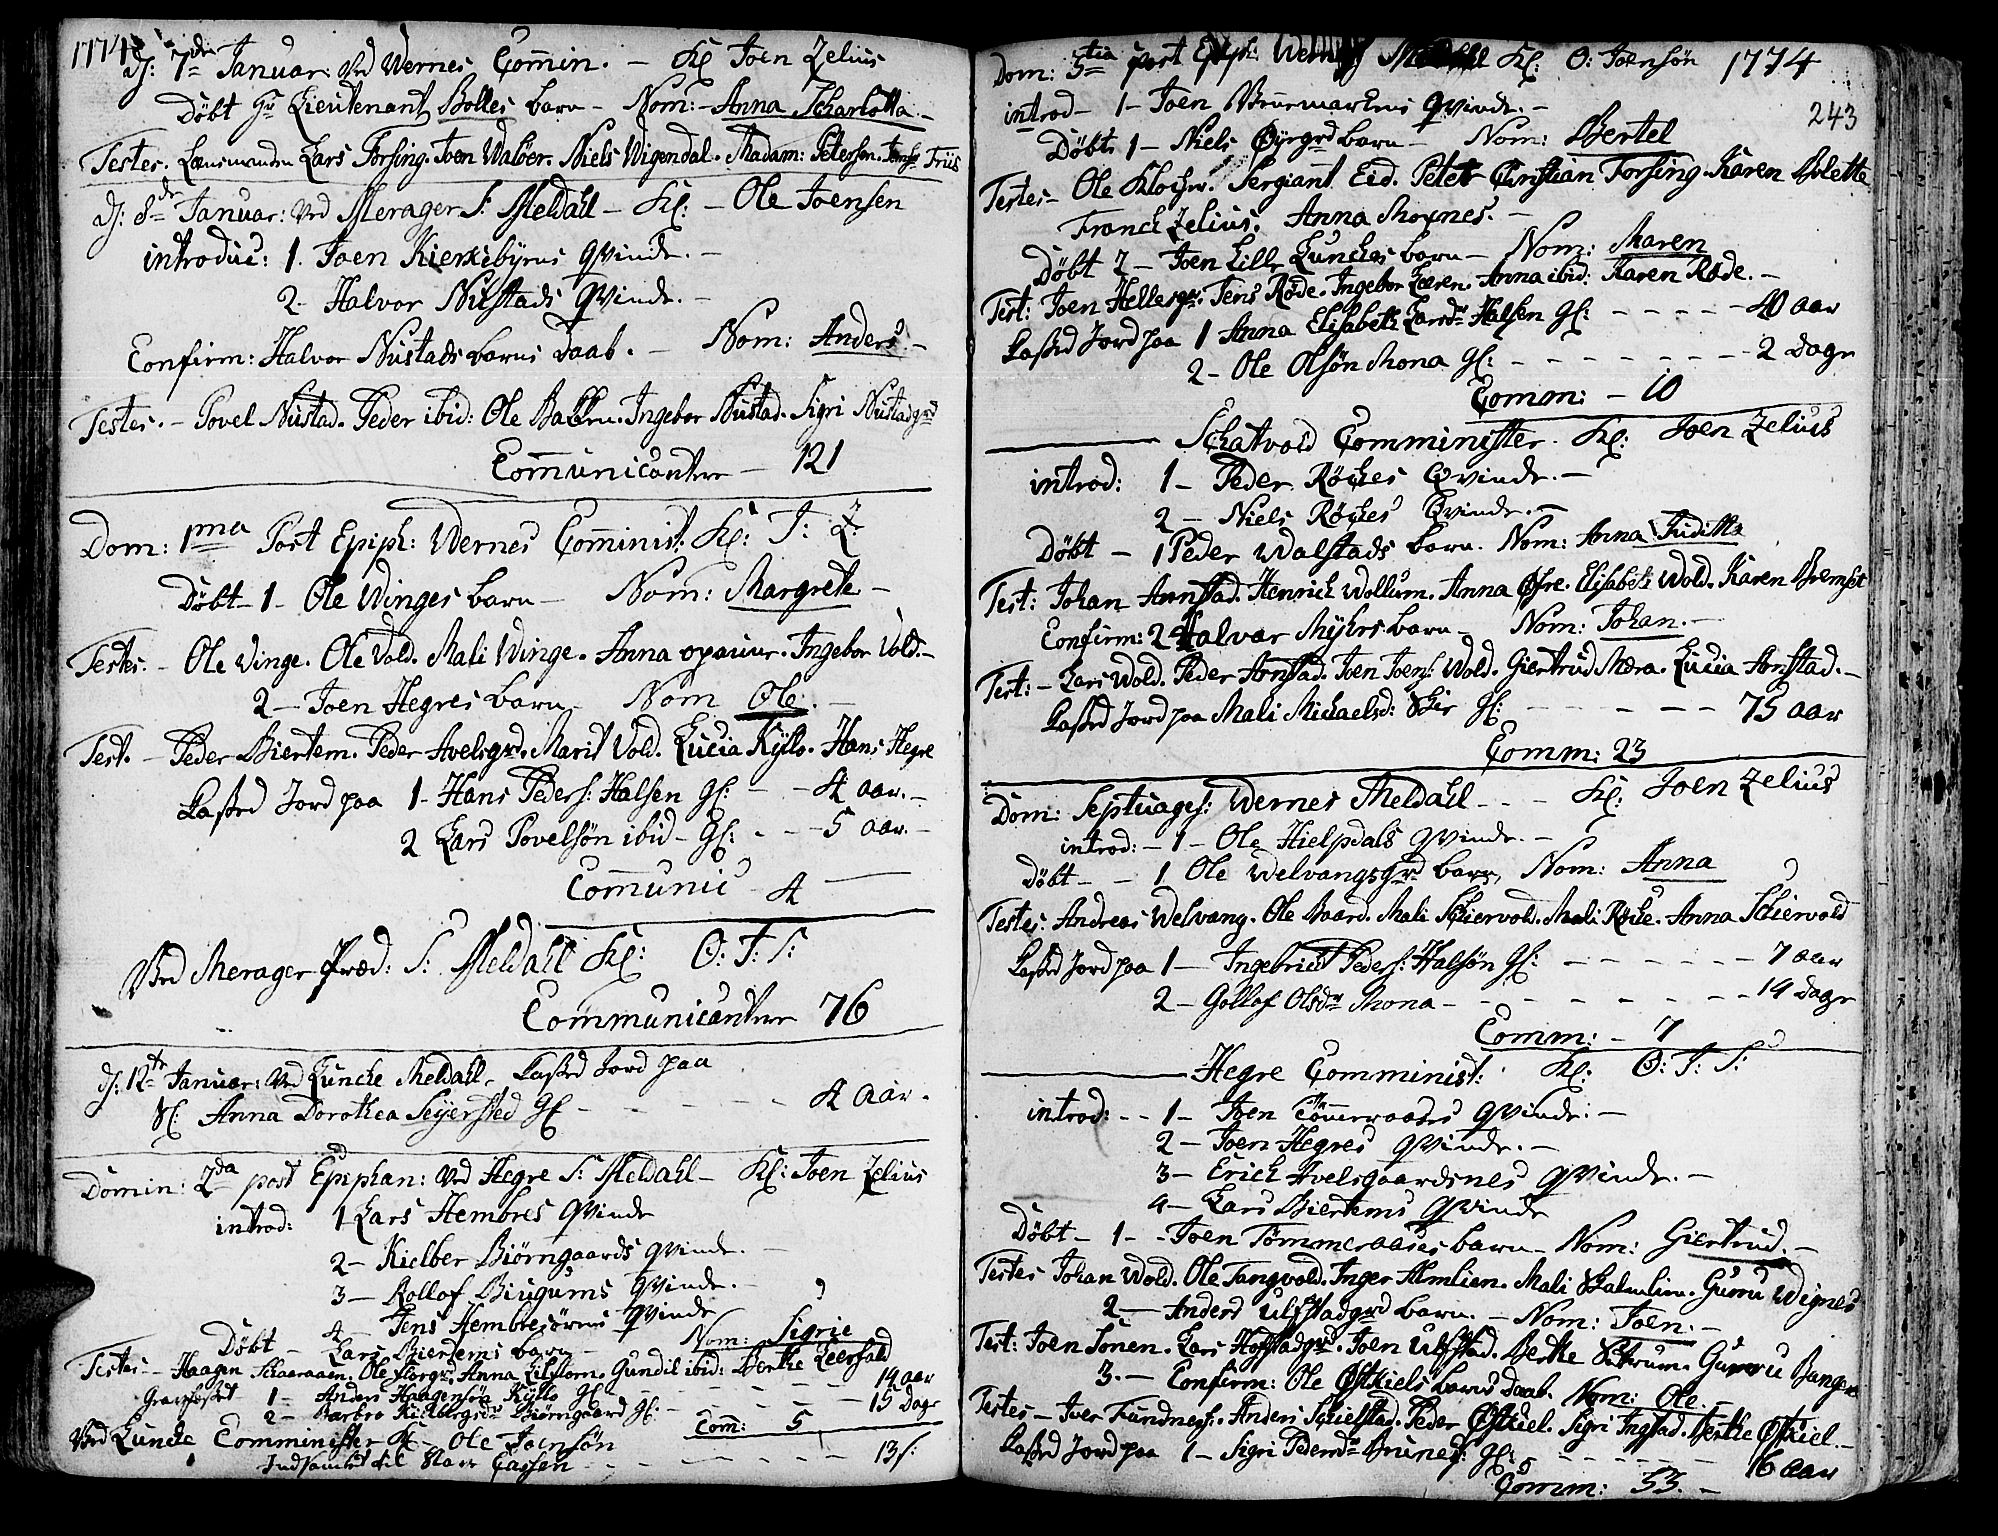 1774
dj: 7de Januar: ved Wernes Comin. – Kl Joen Zelius
Döbt Hr Lieutenant Bolles barn – Nom: – Anna Scharlotta –
Testes. Lænsmanden Lars Forsing. Joen Walber. Niels Wigendal. Madam: Peterson. Friis
dj: 8de Januar: ved Merager S: Meldahl – Kl: – Ole Joensen
introduc: 1. Joen Kierkebyrns qvinde. –
2– Halvor Nustads qvinde. –
Confirm: Halvor Nustads barns daab. – Nom: Anders –
Testes. – Povel Nustad. Peder ibid: Ole Bakken. Ingebor Nustad. Sigri Nustadgrd
Communicanter – 121
Dom: 1ma Post Epiph: Wernes Cominist: Kl: J: Z
Döbt – 1 – Ole Winges barn – Nom: Margrete –
Testes. – Ole Winge. Ole Vold. Mali Winge. Anna Ingebor Vold. –
2 – Joen Hegres barn – Nom Ole. –
Test. – Peder Biertem. Peder Avelsgrd. Marit Vold. Lucia Kyllo. Hans Hegre
Kasted Jord paa 1 – Hans Peders: Halsen gl: – – 4 aar. –
2 Lars Povelsön ibid – gl: – – 5 aar. –
Communic 4 –
Ved Merager Præd: S: Meldahl Kl: O: J: S:
Communicanter 76
dj: 12te Januar: ved Luncke Meldahl – Kasted Jord paa
Sl: Anna Dorothea Seyersted gl – – – 4 aar.
Domin: 2da post Epiphan: ved Hegre S: Meldahl – Kl: Joen Zelius
introd: 1 Lars Hembres qvinde
2 – Kielber Biörngaards qvinde. –
3 – Rollof Biugums qvinde. –
4 Jens Hembresörens qvinde
Döbt – Lars Biertems barn – Nom: Sigrie
Testes – Haagen Schaaraaen. Ole Anna Lilflom. Gundil ibid: Berthe Leersald
Gravfæstet 1 – Anders Haagensön Kyllo gl – – – 19 aar
2 – Barbro Kielbergsdr Biörngaard gl: – – – 15 Dage
Ved Luncke Comminister Kl – Ole Joensön Com: 5
Indsamlet til Cassen – – – 13 s:
Dom: 5tia post Epiph: Wernes Kl: O: Joensön 1774
243
introd – 1 – Joen Bruemarkens qvinde. –
Döbt 1 – Niels Öyrgrd barn – Nom: Bertel
Testes – Ole Klocher. Sergiant Eid. Peter Christian Forsing. Karen Bolette
Franck Zelius. Anna Moxnes. –
Döbt 2 – Joen Lille Lunckes barn – Nom: Maren
Test: Joen Hellesgr. Jens Röde. Ingebor Anna ibid: Karen Röde. –
Kasted Jord paa 1 Anna Elisabeth Larsdr Halsen gl: – – – – 40 aar
2 – Ole Olsön Mona gl: – – – – – 2 dage
Comm: – 10
Schatvold Comminister. Kl: Joen Zelius
introd: 1 – Peder Röckes Qvinde. –
2 – Niels Röckes Qvinde. –
Döbt – 1 Peder Walstads barn. Nom: Anna Judithe
Test: Johan Arnstad. Henrich Wollum. Anna Öfre. Elisabeth Wold. Karen Bremset
Confirm: 2 Halvar Myhrs barn – Nom: Johan. –
Test: – Lars Wold. Peder Arnstad. Joen Joens: Wold. Giertrud Mæra. Lucia Arnstad. –
Kasted Jord paa Mali Michaelsd: gl: – – – – 75 aar
Comm: 23
Dom: Septuages: Wernes Meldahl – – – Kl: Joen Zelius
introd: – 1 – Ole Hielpdals qvinde. –
Döbt – – 1 Ole Welvangsgrd barn, Nom: Anna
Testes: Andreas Welvang. Ole Baard. Mali Schiervold. Mali Röcke. Anna Schiervold
Kasted Jord paa 1 – Ingebricht Peders: Halsön gl: – – – – 7 aar
2 – Gollof Olsdr Mona – – – – – 19 Dage
Comm: – 7
Hegre Comminist: Kl: O: J: S:
introd: – – 1 – Joen Tömeraases qvinde: –
2 – Joen Hegres qvinde. –
3 – Erich Avelsgaardsnes qvinde. –
4 – Lars Biertems qvinde
Döbt – 1 – Joen Tömmeraases barn – Nom: Giertrud. –
Testes Johan Wold. Ole Tangvold. Inger Almlien. Mali Skalmlien. Guru Wignes
2 – Anders Ulstadgrd barn. – Nom: Joen. –
Test: Joen Sonen. Lars Hofstadgrd. Joen Ulstad. Berthe Sutrum. Guru Bangen
3. – Confirm: Ole Östkiels barns daab. Nom: Ole. –
Testes – Iver Fundnegs. Anders Schielstad. Peder Östkiel. Sigri Ingstad. Berthe Östkiel. –
Kasted Jord paa 1 – Sigri Pedersdr Brunes: gl: – – – – 16 aar
Comm: 53. –